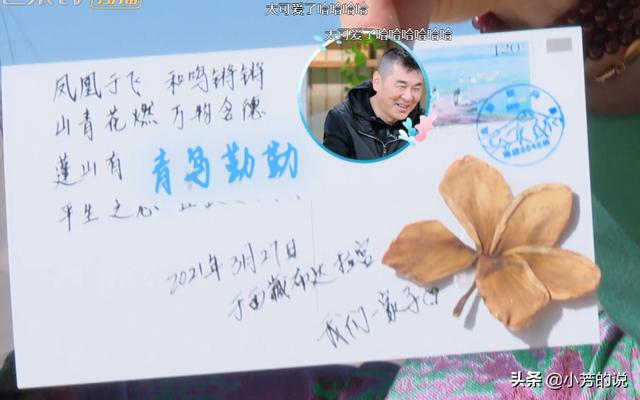 太可爱了哈哈哈哈
太可爱了哈哈哈哈哈哈
120
凤凰于飞 和鸣锵锵
山青花燃 万物含德
蓬山有 青鸟勤勤
平生之心
2021年3月27日
于西藏布达拉宫
我们一家子
头条 @小芳的说